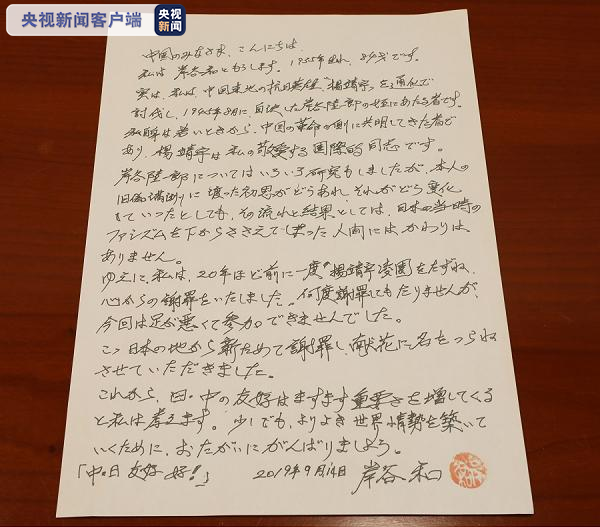 央视新闻客户端
央视新闻
中国のみなさま、こんにちは。
私は岸谷和ともうします。1935年生れ、84才です。
実は、私は、中国東北の抗日英雄、"楊靖宇"を通化で
討伐し、1945年8月に、自決した岸谷隆一郎の姪にあたる者です。
私は若いときから、中国の革命の側に共鳴してきた者で
あり、楊靖宇は私の敬愛する国際的同志です。
岸谷隆一郎についてはいろいろ研究もしましたが、本人の
旧偽満州に渡った初志がどうあれ、それがどう悪化
していったとしても、その流れと結果としては、日本の当時の
ファシズムを下からささえてしまった人間にはかわりは
ありません。
ゆえに、私は、20年ほど前に一度"楊靖宇陵園をたずね、
心からの謝罪をいたしました。何度謝罪してもたりませんが、
今回は足が悪くて参加できませんでした。
この日本の地から新ためて謝罪し、献花に名をつらね
させていただきました。
これから、日・中の友好はますます重要さを増してくる
と私は考えます。少しでも、よりよき世界情勢を築いて
いくために、おたがいにがんばりましょう。
「中・日友好好!」 2019年9月14日 岸谷和